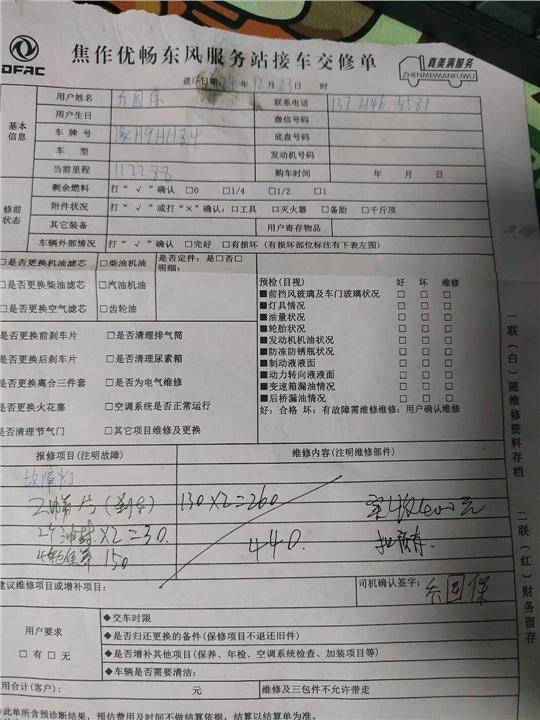 DFAC
焦作优畅东风服务站接车交修单
真美满服务
ZHENMEIMANFUWU
进厂日期 24 年 12 月 23 日 时
基本信息
用户姓名 联系电话
用户生日 微信号码
车牌号 豫H9HH84 底盘号码
车型 发动机号码
当前里程 112288 购车时间 年 月 日
修前状态
剩余燃料 打“√”确认 □0 □1/4 □1/2 □1
附件状况 打“√”或打“×”确认：□工具 □灭火器 □备胎 □千斤顶
其它装备 用户寄存物品
车辆外部情况 打“√”确认 □完好 □有损坏（有损坏部位标注有下表左图）
□是否更换机油滤芯 □柴油机油 是否定件：是□否□
明细：
□是否更换柴油滤芯 □汽油机油
□是否更换空气滤芯 □齿轮油
是否更换前刹车片 □是否清理排气筒
是否更换后刹车片 □是否清理尿素箱
是否更换离合三件套 □是否为电气维修
是否更换火花塞 □空调系统是否正常运行
是否清理节气门 □其它项目维修及更换
预检（目视） 好 坏 维修
■前挡风玻璃及车门玻璃状况 □ □ □
■灯具情况 □ □ □
■油量状况 □ □ □
■轮胎状况 □ □ □
■发动机机油状况 □ □ □
■防冻防锈瓶状况 □ □ □
■制动液液面 □ □ □
■动力转向液液面 □ □ □
■变速箱漏油情况 □ □ □
■后桥漏油情况 □ □ □
好：合格 坏：有故障需维修维修：用户确认维修
报修项目（注明故障） 维修内容（注明维修部件）
故障灯
130×2=260
×2=30.
150
440.
建议维修项目或增补项目：
司机确认签字：
用户要求
□有 □无
◆交车时限
◆是否归还更换的备件（保修项目不退还旧件）
◆是否增补其他项目（保养、年检、空调系统检查、加装项目等）
◆车辆是否需要清洁：
用合计（客户）： 元 维修及三包件不允许带走
此单所含预诊断结果，预估费用及时间不做结算依据，结算以结算单为准。
一联（白）随维修资料存档 二联（红）财务留存